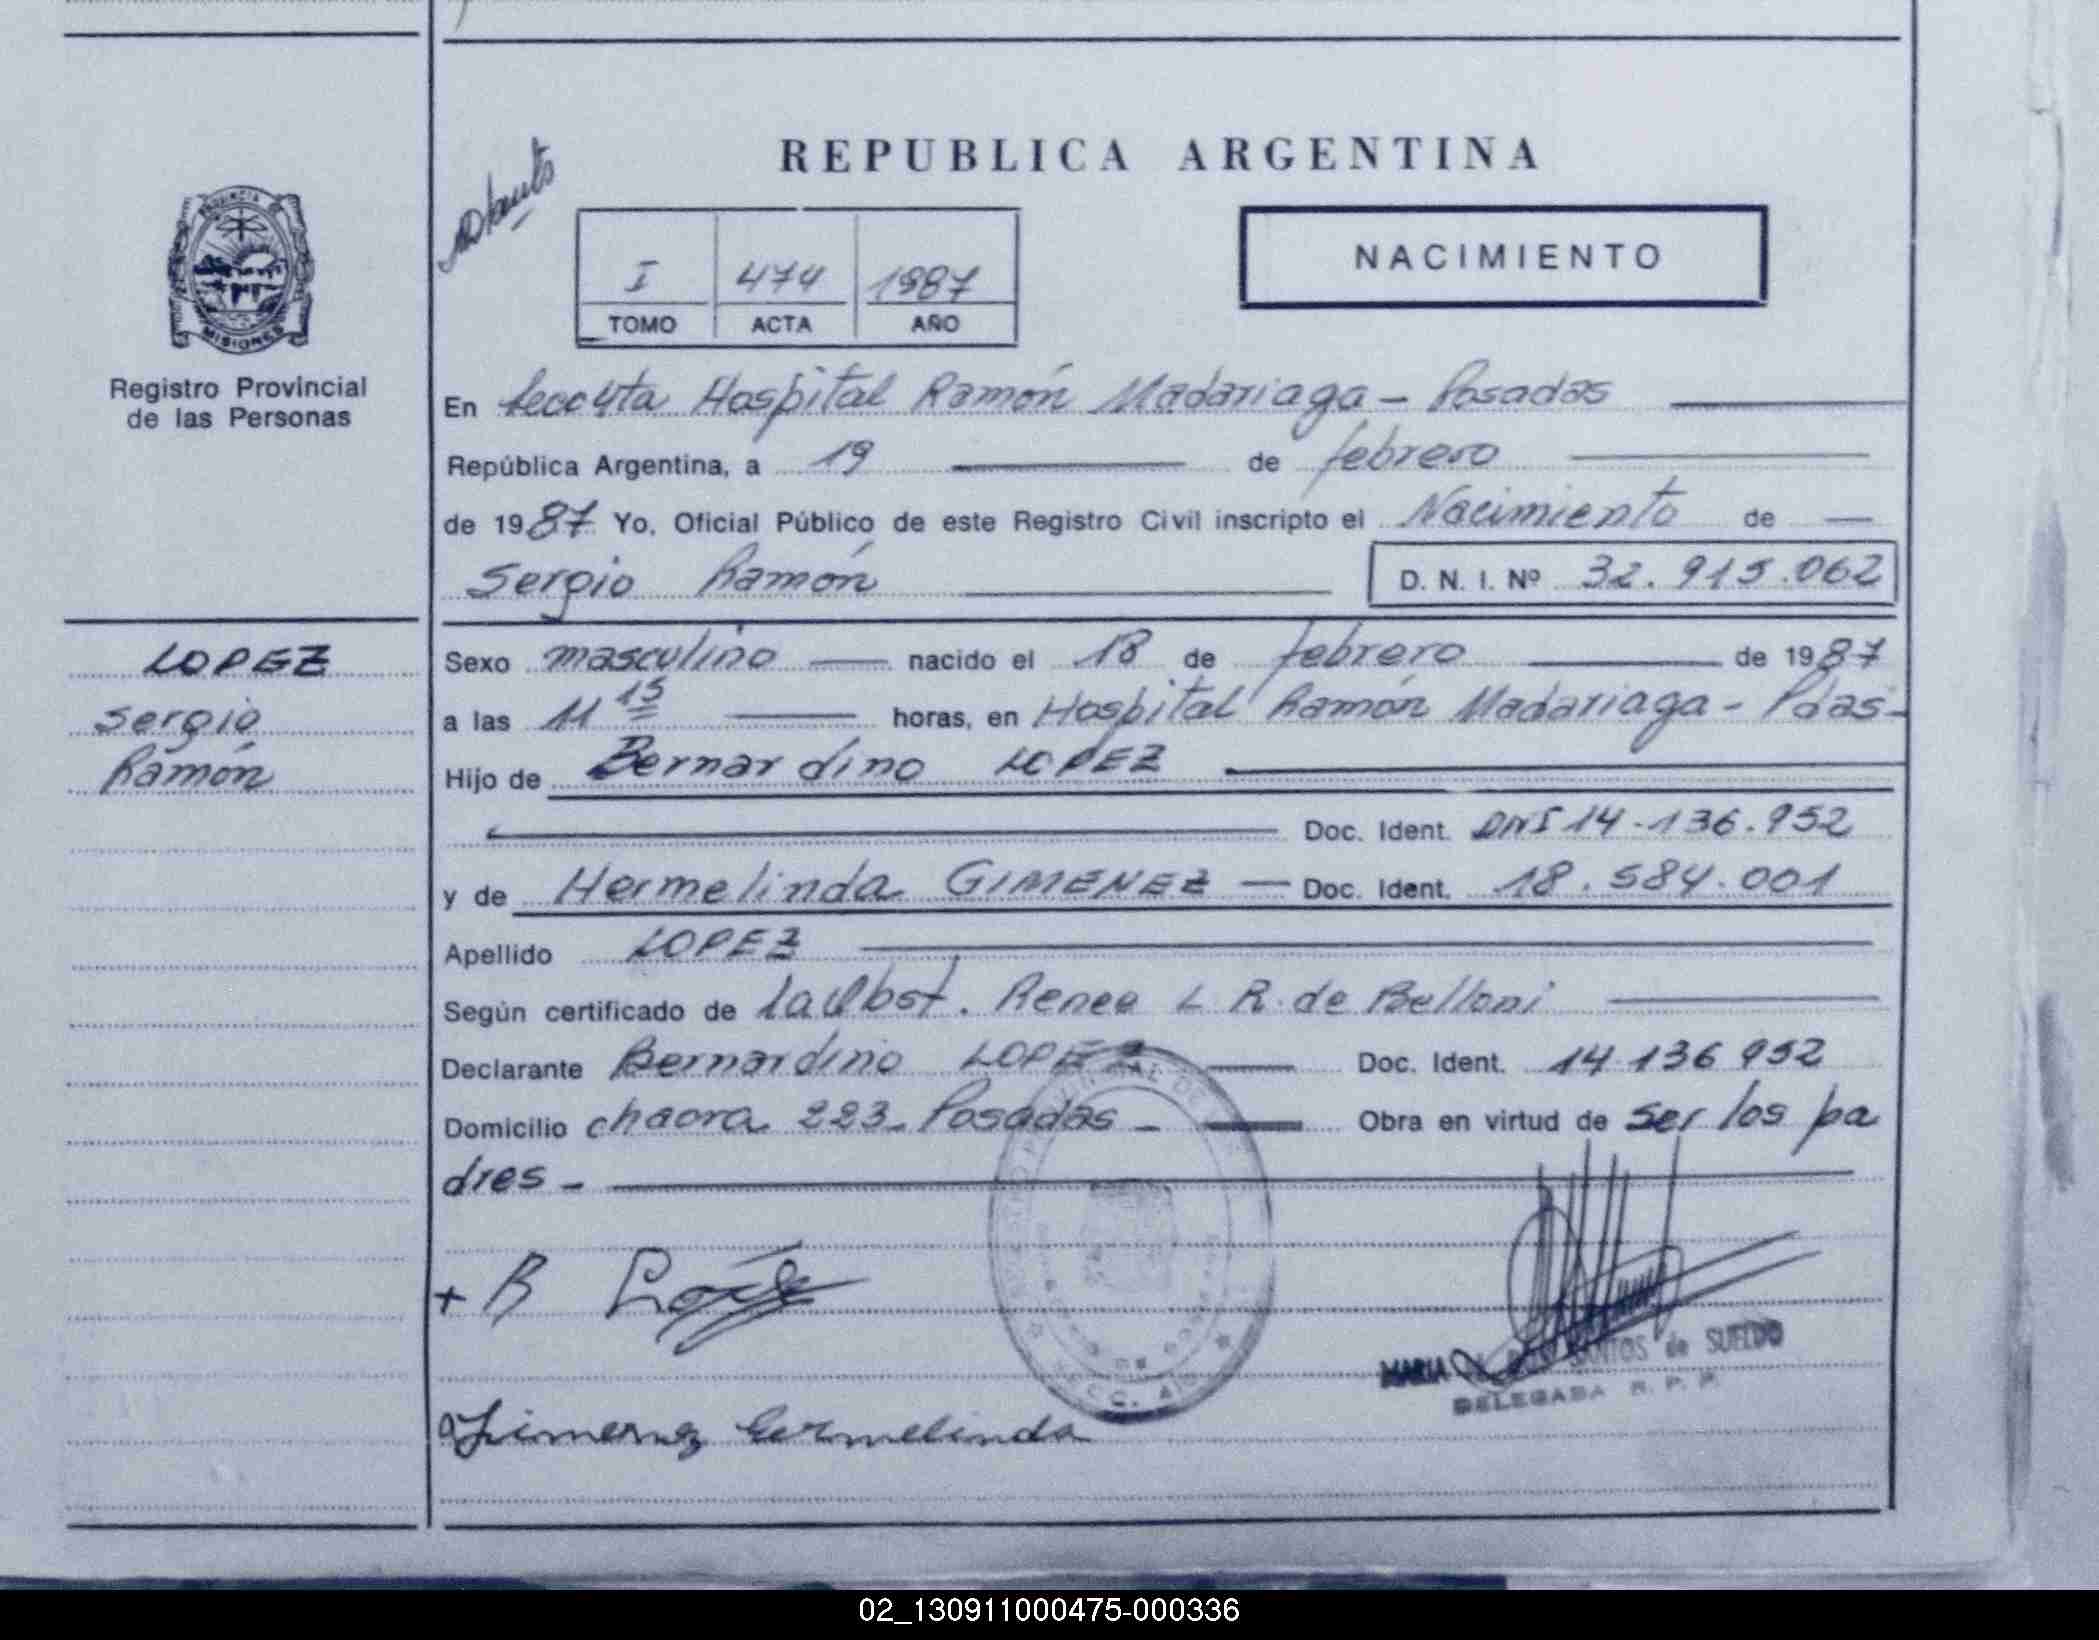 REPUBLICA ARGENTINA
NACIMIENTO
I 474 1987
TOMO ACTA AÑO
PROVINCIA DE
MISIONES
Registro Provincial
de las Personas
En Secc 4ta Hospital Ramón Madariaga - Posadas
República Argentina, a 19 de febrero
de 1987 Yo, Oficial Público de este Registro Civil inscripto el Nacimiento de
Sergio Ramón D. N. I. Nº 32.915.062
LOPEZ
Sergio
Ramón
Sexo masculino nacido el 18 de febrero de 1987
a las 11 15 horas, en Hospital Ramón Madariaga - Pdas-
Hijo de Bernardino LOPEZ
Doc. Ident. DNI 14.136.952
y de Hermelinda GIMENEZ Doc. Ident. 18.584.001
Apellido LOPEZ
Según certificado de la Obst. Renee L R. de Belloni
Declarante Bernardino LOPEZ Doc. Ident. 14 136 952
Domicilio chacra 223- Posadas - Obra en virtud de ser los pa
dres -
+ B López
MARIA DOS SANTOS de SUELDO
DELEGADA R. P. P.
Gimenez Hermelinda
02_130911000475-000336